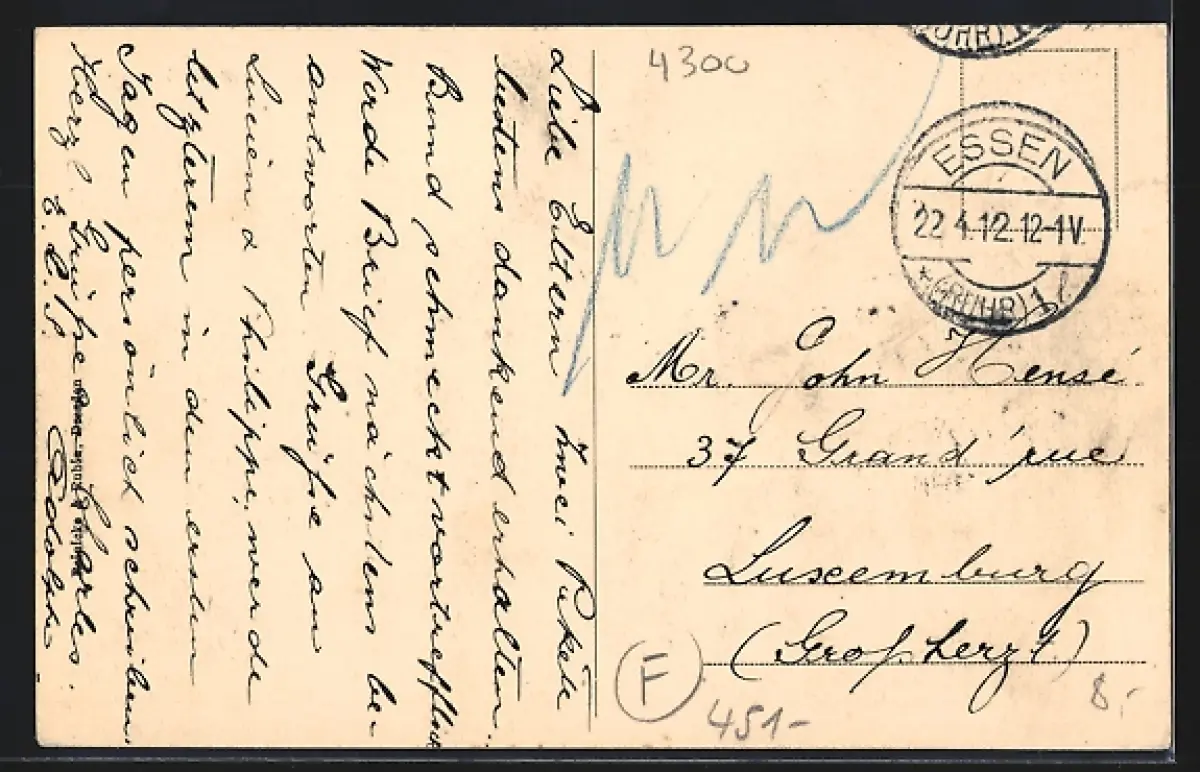 Liebe Eltern Zwei Pakete
bestens dankend erhalten.
Bund schmeckt vortrefflich
Werde Brief nächstens be-
antworten. Grüße an
Lucien & Philippe, werde
letzterem in den ersten
Tagen persönlich schreiben.
Herzl. Grüße Charles.
Adolphe
4300
ESSEN
22.4.12.12-1V.
*(RUHR)1
Mr. John Hensé.
37 Grand'rue
Luxemburg
(Großherzt.)
F
451-
8,-